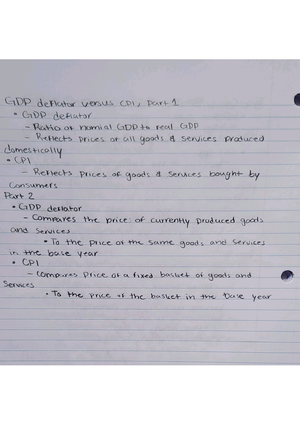 GDP deflator versus CPI, Part 1
• GDP deflator
- Ratio of nomial GDP to real GDP
- Reflects prices of all goods & services produced
domestically
• CPI
- Reflects prices of goods & services bought by
consumers
Part 2
• GDP deflator
- Compares the price of currently produced goods
and services
• To the price of the same goods and services
in the base year
• CPI
- Compares price of a fixed basket of goods and
services
• To the price of the basket in the base year